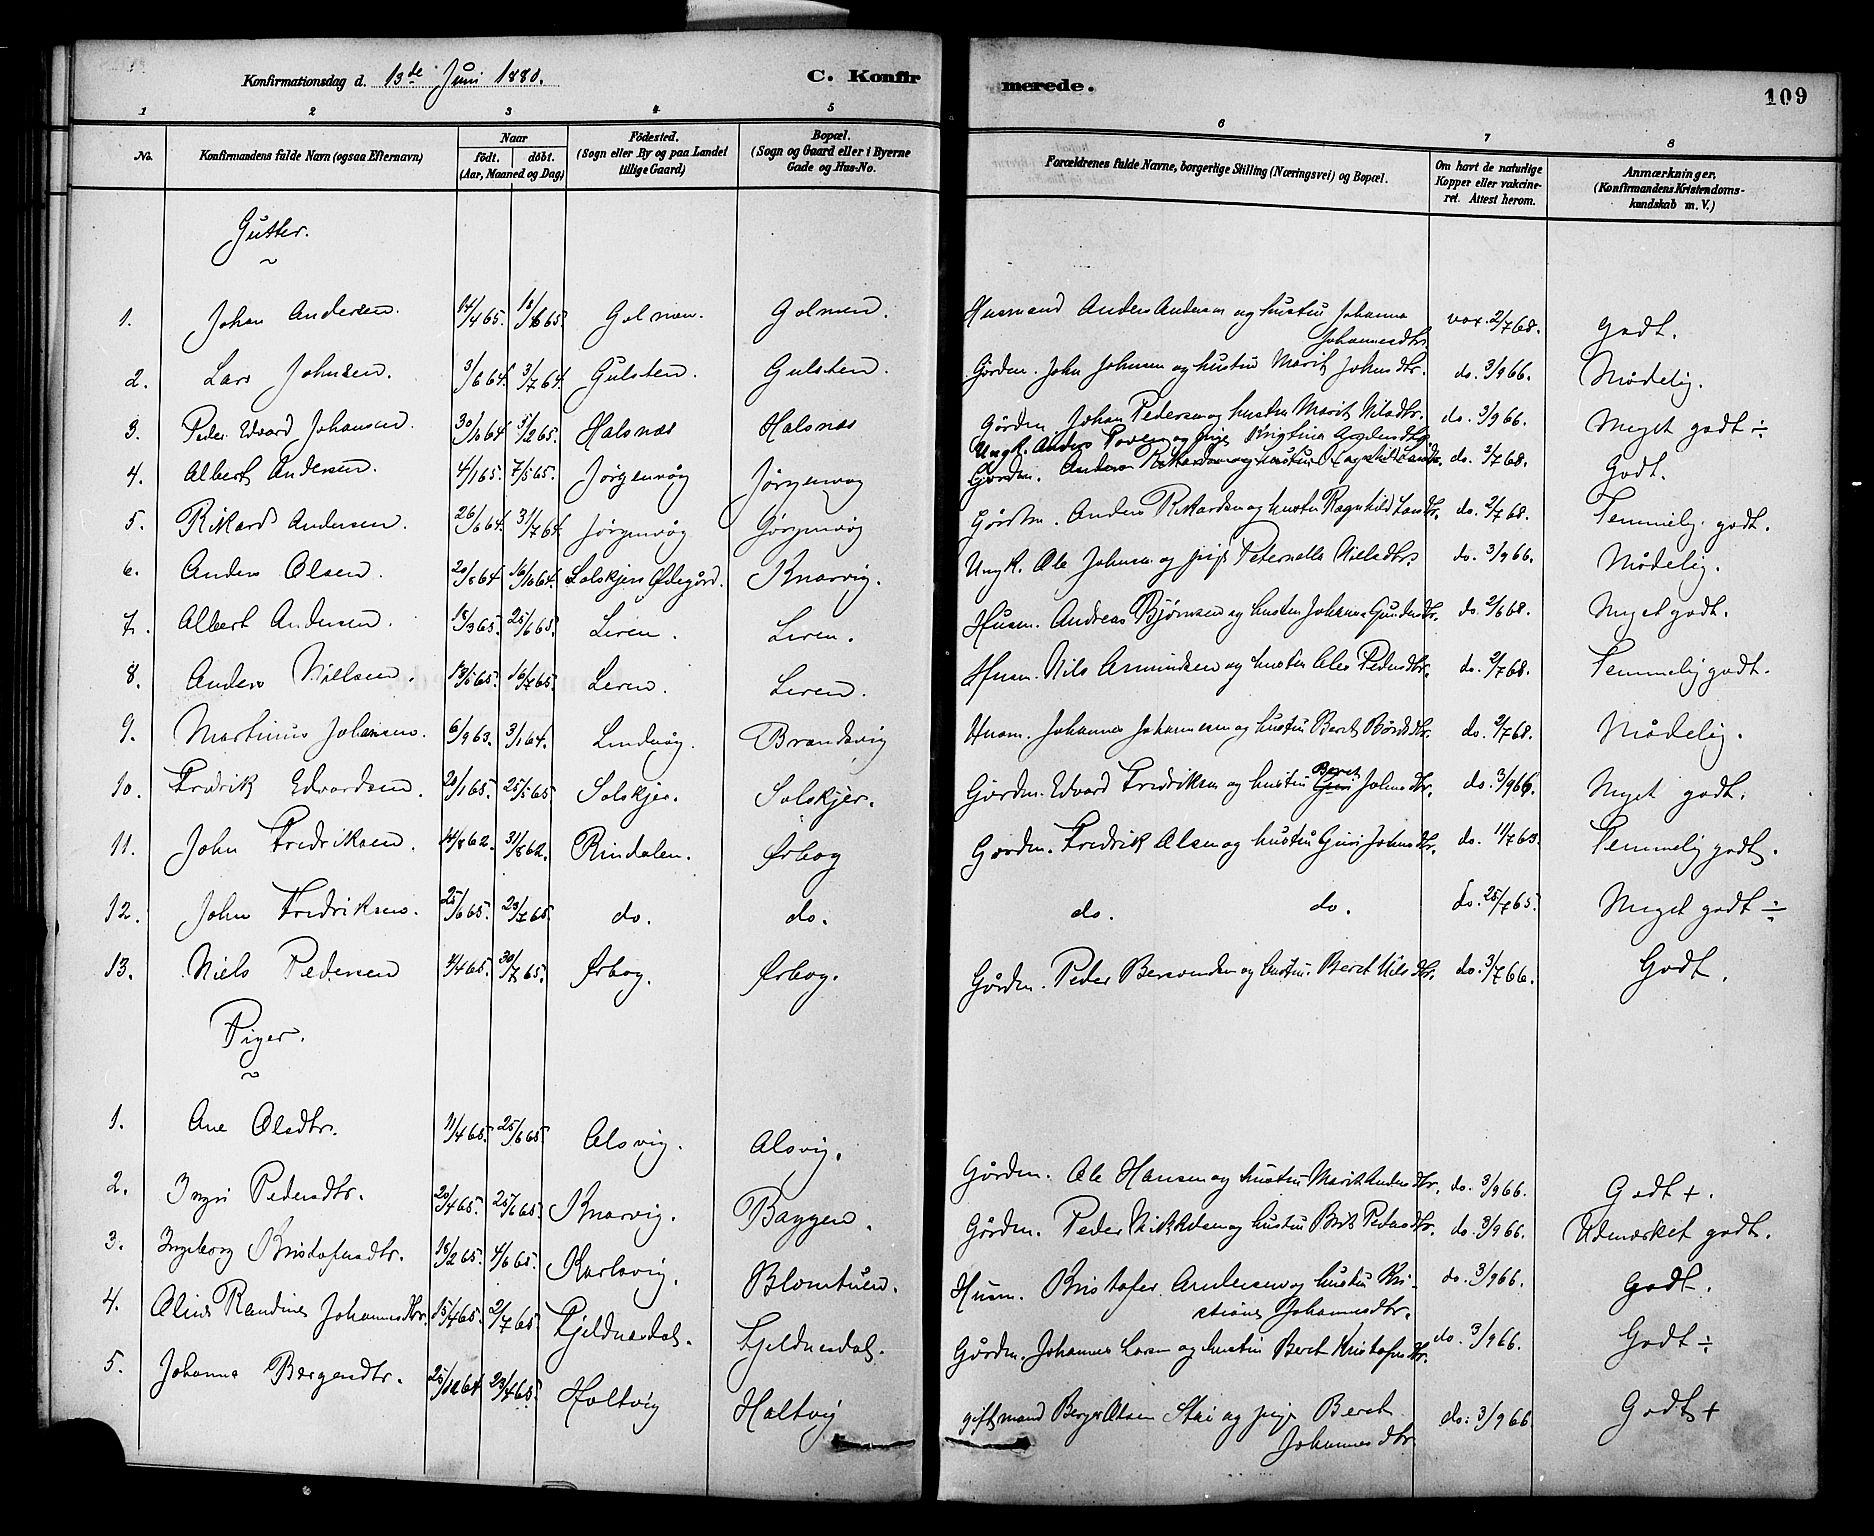 Konfirmationsdag d. 13de Juni 1880.
C. Konfirmerede.
109
1 2 3 4 5 6 7 8
No.
Konfirmandens fulde Navn (ogsaa Efternavn)
Naar
født. døbt.
(Aar, Maaned og Dag)
Fødested.
(Sogn eller By og paa Landet
tillige Gaard)
Bopæl.
(Sogn og Gaard eller i Byerne
Gade og Hus-No.
Forældrenes fulde Navne, borgerlige Stilling (Næringsvei) og Bopæl.
Om havt de naturlige
Kopper eller vakcine-
ret. Attest herom.
Anmærkninger.
(Konfirmandens Kristendoms-
kundskab m. V.)
Gutter.
1. Johan Andersen. 14/4 65. Golmen. Golmen. Husmand Anders Andersen og hustru Johanna Johannesdtr. vax. 2/7 68. Godt.
2. Lars Johnsen. 3/6 64. 3/7 64. Gulsten. Gulsten. Gårdm. John Johnsen og hustru Marit Johnsdtr. do. 3/9 66. Mådelig.
3. Peder Edvard Johansen. 30/10 64 5/2 65. Halsnæs Halsnæs Gårdm. Johan Pedersen og hustru Marit Nilsdtr. do. 3/9 66. Meget godt ÷
4. Albert Andersen. 4/1 65. 7/5 65. Jørgenvåg Jørgenvåg Ungk. Anders Poven og pige Kristine Andersdtr. do. 2/7 68. Godt.
Gårdm. Anders Rikardsen og hustru Ragnhild Larsdtr.
5. Rikard Andersen. 26/6 64. 31/7 64. Jørgenvåg Jørgenvåg Gårdm. Anders Rikardsen og hustru Ragnhild Larsdtr. do. 2/7 68. Temmelig godt.
6. Anders Olsen. 20/8 64 16/10 64. Solskjers Ødegård. Knarvig. Ungk. Ole Johnsen og pige Peternella Nielsdtr. do. 3/9 66. Mådelig.
7. Albert Andersen. 18/3 65. 25/6 65. Leren. Leren. Husm. Andreas Bjørnsen og hustru Johanna Gundersdtr. do. 2/6 68. Meget godt.
8. Anders Nielsen. 13/5 65. 16/7 65. Leren. Leren. Husm. Nils Amundsen og hustru Pedersdtr. do. 2/7 68. Temmelig godt.
9. Martinus Johansen. 6/9 63. 3/1 64. Lindvåg. Brandsvig Husm. Johannes Johannesen og hustru Berit Bårdsdtr. do. 2/7 68. Mådelig.
10. Fredrik Edvardsen. 21/1 65. 25/5 65 Solskjer. Solskjer. Gårdm. Edvard Fredriksen og hustru Guri Beret Johnsdtr. do. 3/9 66. Meget godt.
11. John Fredriksen. 14/8 62. 31/8 62. Rindalen. Ørbog Gårdm. Fredrik Olsen og hustru Guri Johnsdtr. do. 11/7 63. Temmelig godt.
12. John Fredriksen. 25/6 65. 23/7 65. do. do. do. do. do. 25/7 65. Meget godt ÷
13. Niels Pedersen 4/4 65. 30/7 65. Ørbog. Ørbog. Gårdm. Peder Bersvendsen og hustru Beret Nilsdtr. do. 3/7 66. Godt.
Piger.
1. Ane Olsdtr. 11/4 65. 25/6 65. Alsvig. Alsvig. Gårdm. Ole Hansen og hustru Marit Andersdtr. do. 3/9 66. Godt +.
2. Ingri Pedersdtr. 20/4 65. 25/6 65. Knarvig. Baggen. Gårdm. Peder Mikkelsen og hustru Brit Pedersdtr. do. 3/9 66. Udmærket godt.
3. Ingeborg Kristofersdtr. 18/2 65. 4/6 65. Karlsvig. Blomtuen. Husm. Kristofer Andersen og hustru Kri-
stiane Johannesdtr. do. 3/9 66. Godt.
4. Oline Randine Johannesdtr. 15/4 65. 2/7 65. Fjeldnesdal. Fjeldnesdal. Gårdm. Johannes Larsen og hustru Beret Kristofersdtr. do. 3/9 66. Godt ÷
5. Johanna Bergersdtr. 25/12 64. 23/4 65. Holtvig Holtvig gift mand Berger Olsen og pige Beret
Johannesdtr do. 3/9 66 Godt +